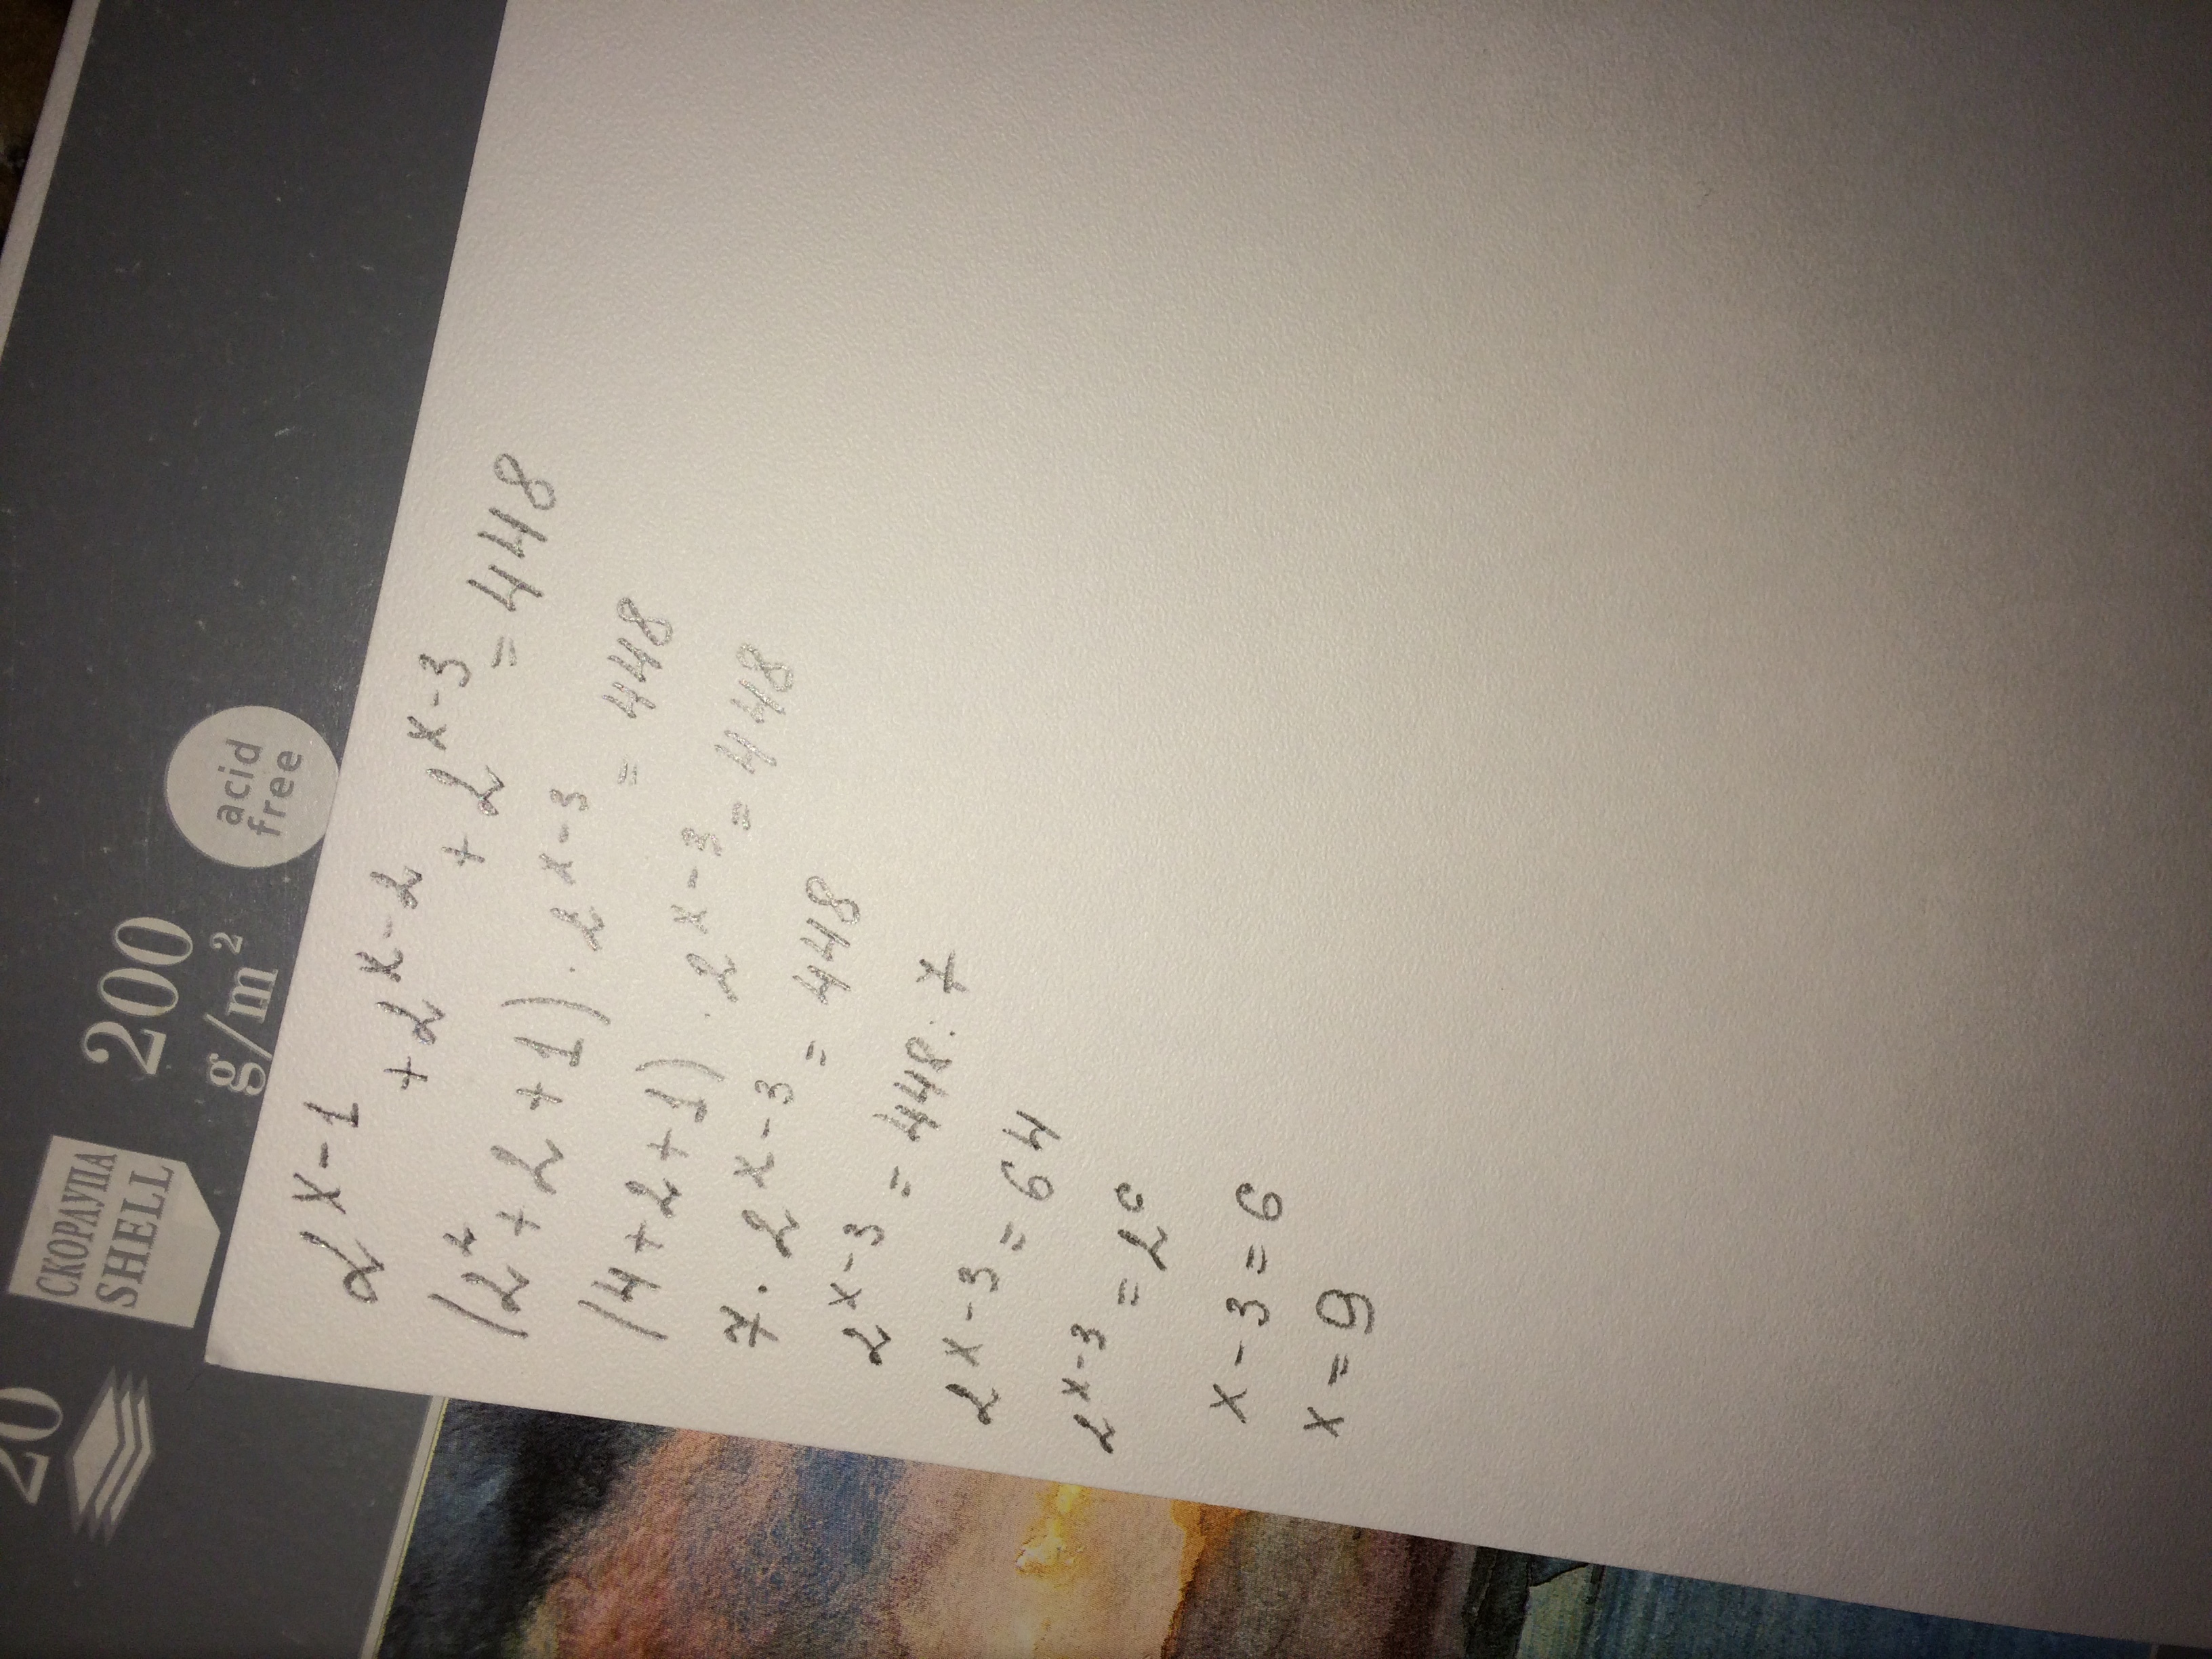 20
СКОРЛУПА
SHELL
200
g/m²
acid
free
2^(x-1) + 2^(x-2) + 2^(x-3) = 448
(2² + 2 + 1) · 2^(x-3) = 448
(4 + 2 + 1) · 2^(x-3) = 448
7 · 2^(x-3) = 448
2^(x-3) = 448 : 7
2^(x-3) = 64
2^(x-3) = 2⁶
x - 3 = 6
x = 9